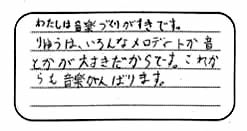 わたしは音楽づくりがすきです。
りゆうは、いろんなメロデートか音
とかが大すきだからです。これか
らも音楽がんばります。